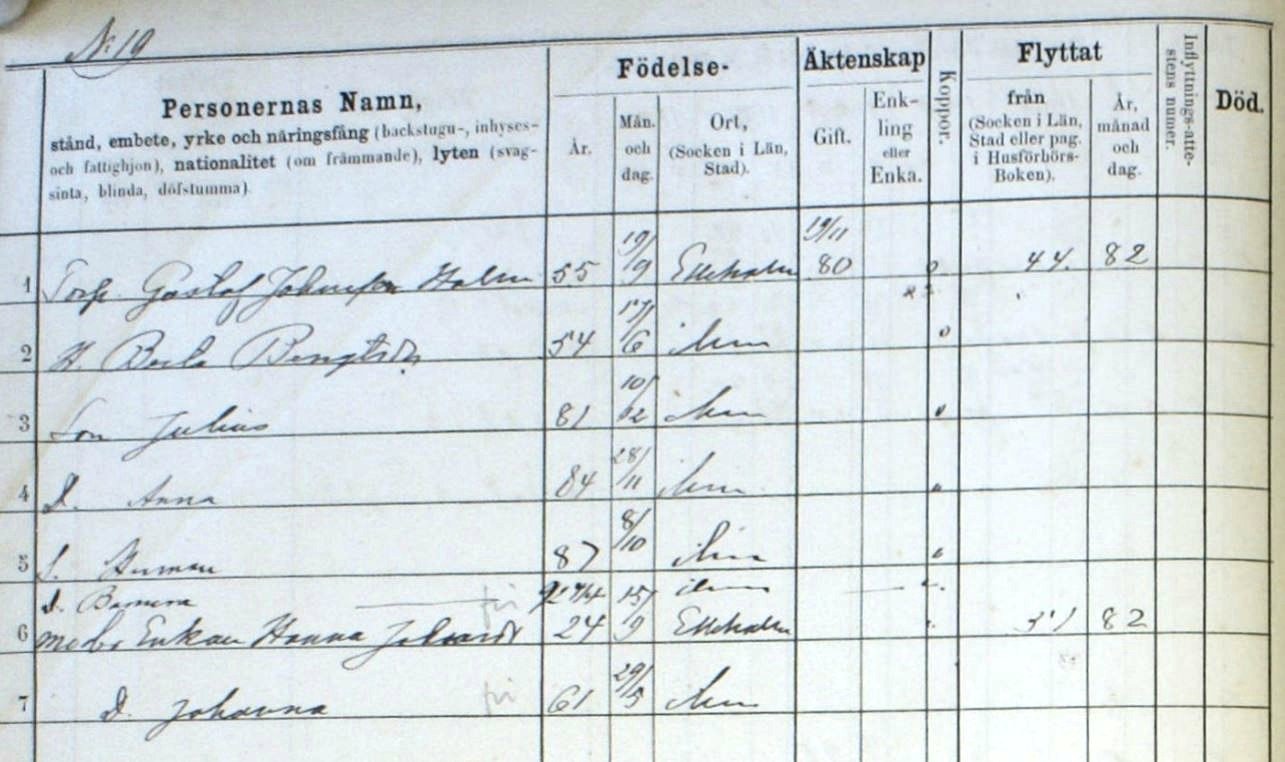 N: 19
Personernas Namn,
stånd, embete, yrke och näringsfång (backstugu-, inhyses-
och fattighjon), nationalitet (om främmande), lyten (svag-
sinta, blinda, döfstumma).
Födelse-
År.
Mån.
och
dag.
Ort,
(Socken i Län,
Stad).
Äktenskap
Gift.
Enk-
ling
eller
Enka.
Koppor.
Flyttat
från
(Socken i Län,
Stad eller pag.
i Husförhörs-
Boken).
År,
månad
och
dag.
Inflyttnings-atte-
stens numer.
Död.
1 Torp. Gustaf Holm 55 19/9 19/11 80 44. 82
2 H. 54 17/6
3 Son Julius 81 10/12
4 D. Anna 84 28/11
5 S. Herman 87 8/10
D.
6 Enkan Hanna 24 15/9 82
7 D. Johanna 61 29/5